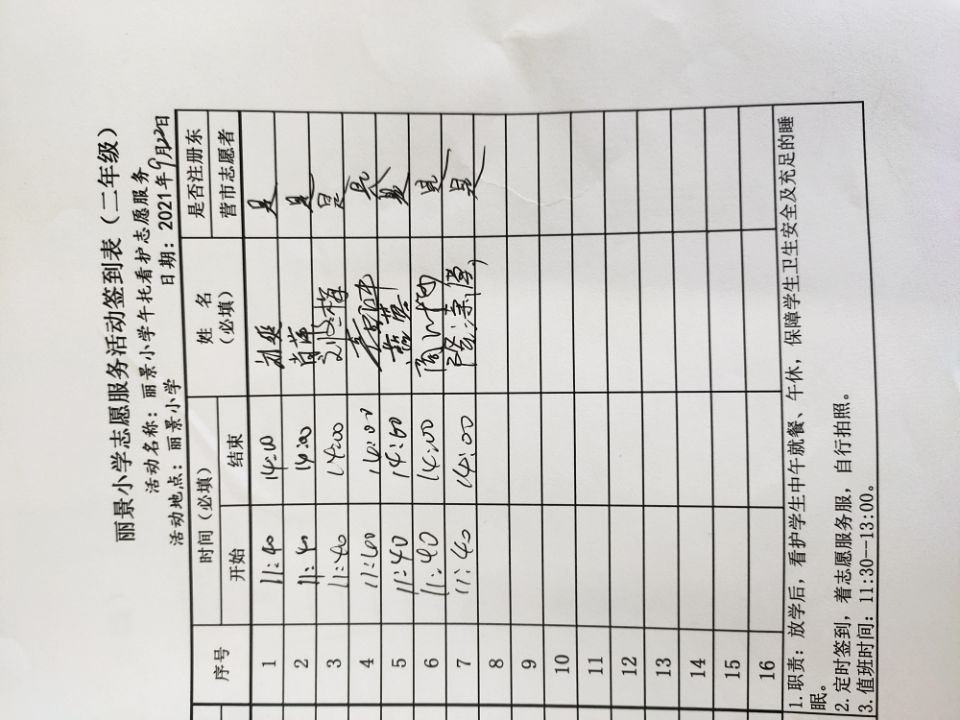 丽景小学志愿服务活动签到表（二年级）
活动名称：丽景小学午托看护志愿服务
活动地点：丽景小学 日期：2021年9月22日
序号 时间（必填） 姓 名（必填） 是否注册东营市志愿者
开始 结束
1 11:40 14:00 是
2 11:40 14:00 肖萍 是
3 11:40 14:00 是
4 11:40 14:00 是
5 11:40 14:00 是
6 11:40 14:00 是
7 11:40 14:00 是
8
9
10
11
12
13
14
15
16
1.职责：放学后，看护学生中午就餐、午休，保障学生卫生安全及充足的睡
眠。
2.定时签到，着志愿服务服，自行拍照。
3.值班时间：11:30--13:00。